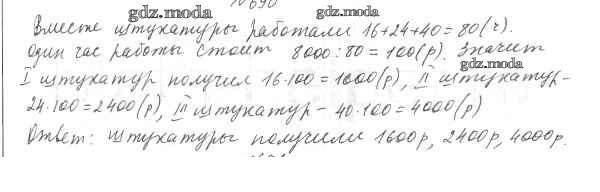 №690
gdz.moda gdz.moda
Вместе штукатуры работали 16+24+40=80(ч).
Один час работы стоит 8000:80=100(р). Значит
gdz.moda
I штукатур получил 16·100=1600(р), II штукатур-
24·100=2400(р), III штукатур - 40·100=4000(р)
Ответ: штукатуры получили 1600р, 2400р, 4000р.